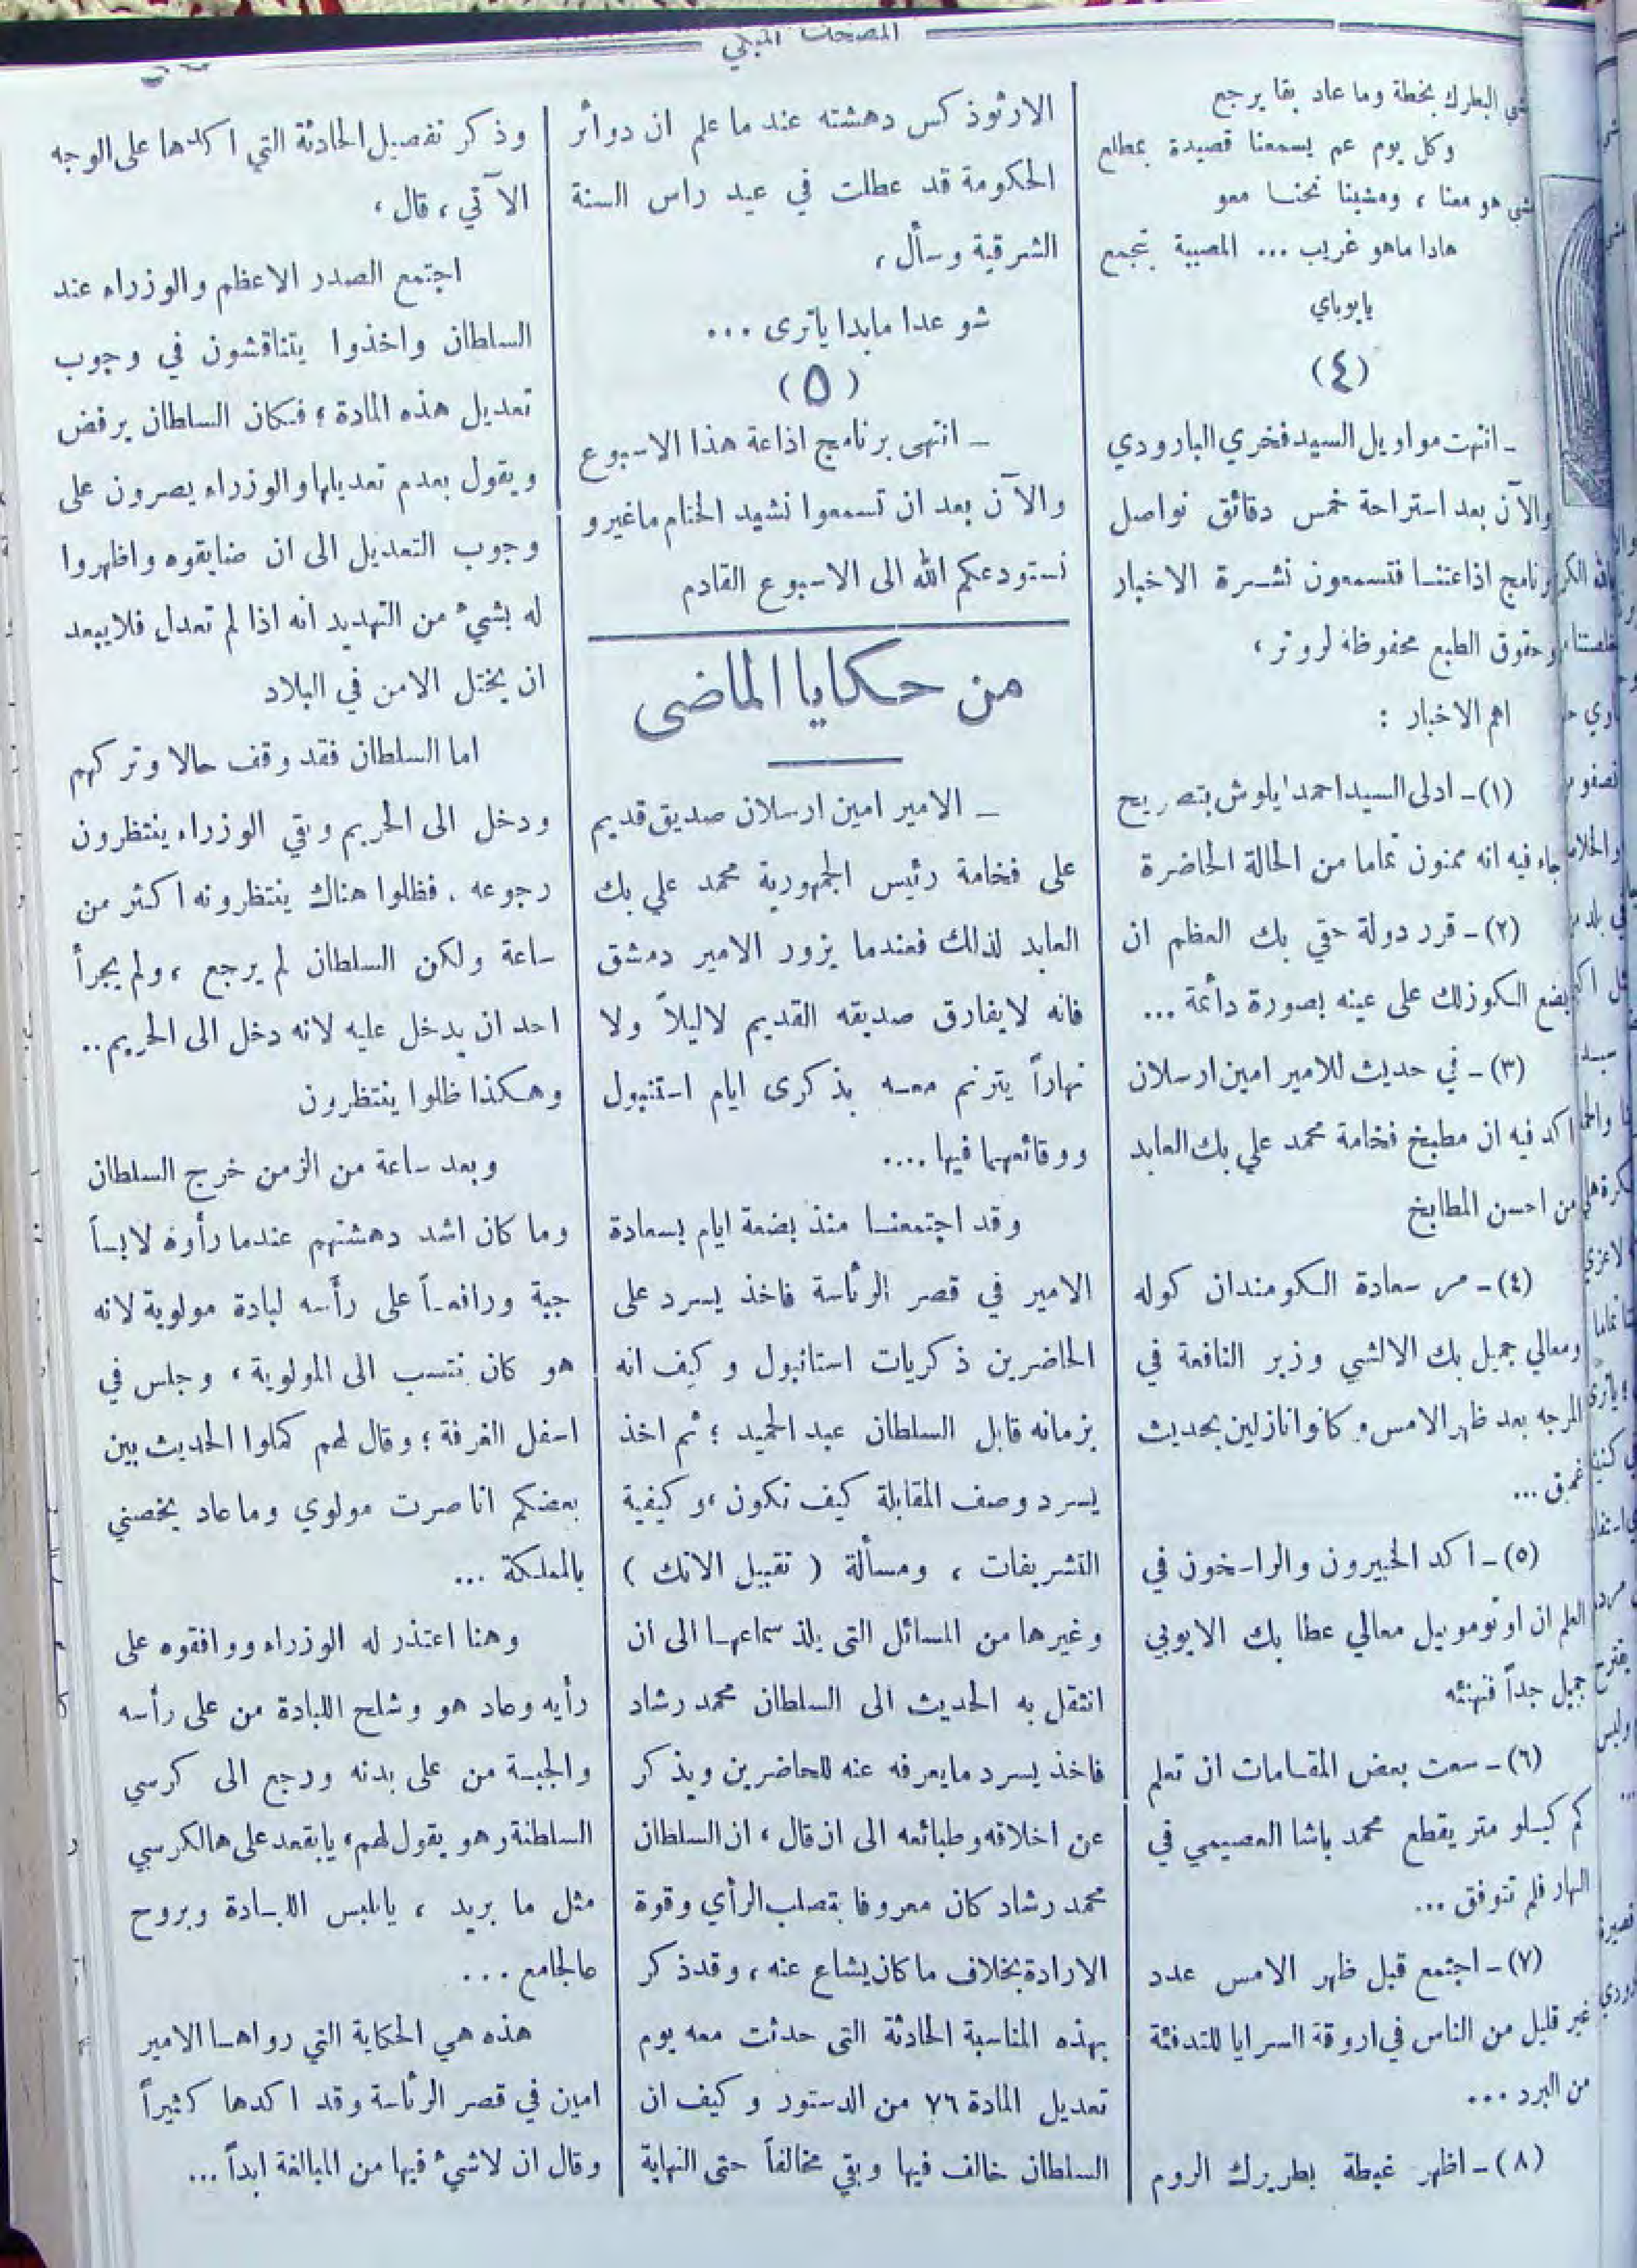 المضحك المبكي
البطرك بخطة وما عاد بقا يرجع
وكل يوم عم يسمعنا قصيدة بمطلع
هو معنا ، ومشينا نحنا معو
هادا ماهو غريب ... المصيبة بتجمع
يابوباي
(٤)
ـ انتهت مواويل السيد فخري البارودي
والآن بعد استراحة خمس دقائق نواصل
برنامج اذاعتنا فتسمعون نشرة الاخبار
وحقوق الطبع محفوظة لروتر ،
اهم الاخبار :
(١)ـ ادلى السيد احمد ايلوش بتصريح
جاء فيه انه ممنون تماما من الحالة الحاضرة
(٢)ـ قرر دولة حقي بك العظم ان
يضع الكوزلك على عينه بصورة دائمة ...
(٣)ـ في حديث للامير امين ارسلان
اكد فيه ان مطبخ فخامة محمد علي بك العابد
من احسن المطابخ
(٤)ـ مر سعادة الكومندان كوله
ومعالي جميل بك الالشي وزير النافعة في
المرجه بعد ظهر الامس وكانوا نازلين بحديث
غميق ...
(٥)ـ اكد الخبيرون والراسخون في
العلم ان اوتوموبيل معالي عطا بك الايوبي
جميل جداً فنهنئه
(٦)ـ سعت بعض المقامات ان تعلم
كم كيلو متر يقطع محمد باشا العصيمي في
النهار فلم تتوفق ...
(٧)ـ اجتمع قبل ظهر الامس عدد
غير قليل من الناس في اروقة السرايا للتدفئة
من البرد ...
(٨)ـ اظهر غبطة بطريرك الروم
الارثوذكس دهشته عند ما علم ان دوائر
الحكومة قد عطلت في عيد راس السنة
الشرقية وسأل ،
شو عدا مابدا ياترى ...
(٥)
ـ انتهى برنامج اذاعة هذا الاسبوع
والآن بعد ان تسمعوا نشيد الختام ماغيرو
نستودعكم الله الى الاسبوع القادم
من حكايا الماضي
ـ الامير امين ارسلان صديق قديم
على فخامة رئيس الجمهورية محمد علي بك
العابد لذلك فعندما يزور الامير دمشق
فانه لايفارق صديقه القديم لاليلاً ولا
نهاراً يترنم معه بذكرى ايام استنبول
ووقائعهما فيها ....
وقد اجتمعنا منذ بضعة ايام بسعادة
الامير في قصر الرئاسة فاخذ يسرد على
الحاضرين ذكريات استانبول وكيف انه
بزمانه قابل السلطان عبد الحميد ؛ ثم اخذ
يسرد وصف المقابلة كيف تكون ، وكيفية
التشريفات ، ومسألة ( تقبيل الاتك )
وغيرها من المسائل التي يلذ سماعها الى ان
انتقل به الحديث الى السلطان محمد رشاد
فاخذ يسرد مايعرفه عنه للحاضرين ويذكر
عن اخلاقه وطبائعه الى ان قال ، ان السلطان
محمد رشاد كان معروفا بتصلب الرأي وقوة
الارادة بخلاف ما كان يشاع عنه ، وقد ذكر
بهذه المناسبة الحادثة التي حدثت معه يوم
تعديل المادة ٧٦ من الدستور وكيف ان
السلطان خالف فيها وبقي مخالفاً حتى النهاية
وذكر تفصيل الحادثة التي اكدها على الوجه
الآتي ، قال ،
اجتمع الصدر الاعظم والوزراء عند
السلطان واخذوا يتناقشون في وجوب
تعديل هذه المادة ؛ فكان السلطان يرفض
ويقول بعدم تعديلها والوزراء يصرون على
وجوب التعديل الى ان ضايقوه واظهروا
له بشيءٍ من التهديد انه اذا لم تعدل فلا يبعد
ان يختل الامن في البلاد
اما السلطان فقد وقف حالا وتركهم
ودخل الى الحريم وبقي الوزراء ينتظرون
رجوعه . فظلوا هناك ينتظرونه اكثر من
ساعة ولكن السلطان لم يرجع ، ولم يجرأ
احد ان يدخل عليه لانه دخل الى الحريم ..
وهكذا ظلوا ينتظرون
وبعد ساعة من الزمن خرج السلطان
وما كان اشد دهشتهم عندما رأوه لابساً
جبة ورافعاً على رأسه لبادة مولوية لانه
هو كان ننتسب الى المولوية ، وجلس في
اسفل الغرفة ؛ وقال لهم كملوا الحديث بين
بعضكم انا صرت مولوي وما عاد يخصني
بالمملكة ...
وهنا اعتذر له الوزراء ووافقوه على
رأيه وعاد هو وشلح اللبادة من على رأسه
والجبة من على بدنه ورجع الى كرسي
السلطنة وهو يقول لهم ، يابقعد على هالكرسي
مثل ما بريد ، يابلبس اللبادة وبروح
عالجامع ...
هذه هي الحكاية التي رواها الامير
امين في قصر الرئاسة وقد اكدها كثيراً
وقال ان لاشيءٍ فيها من المبالغة ابداً ...